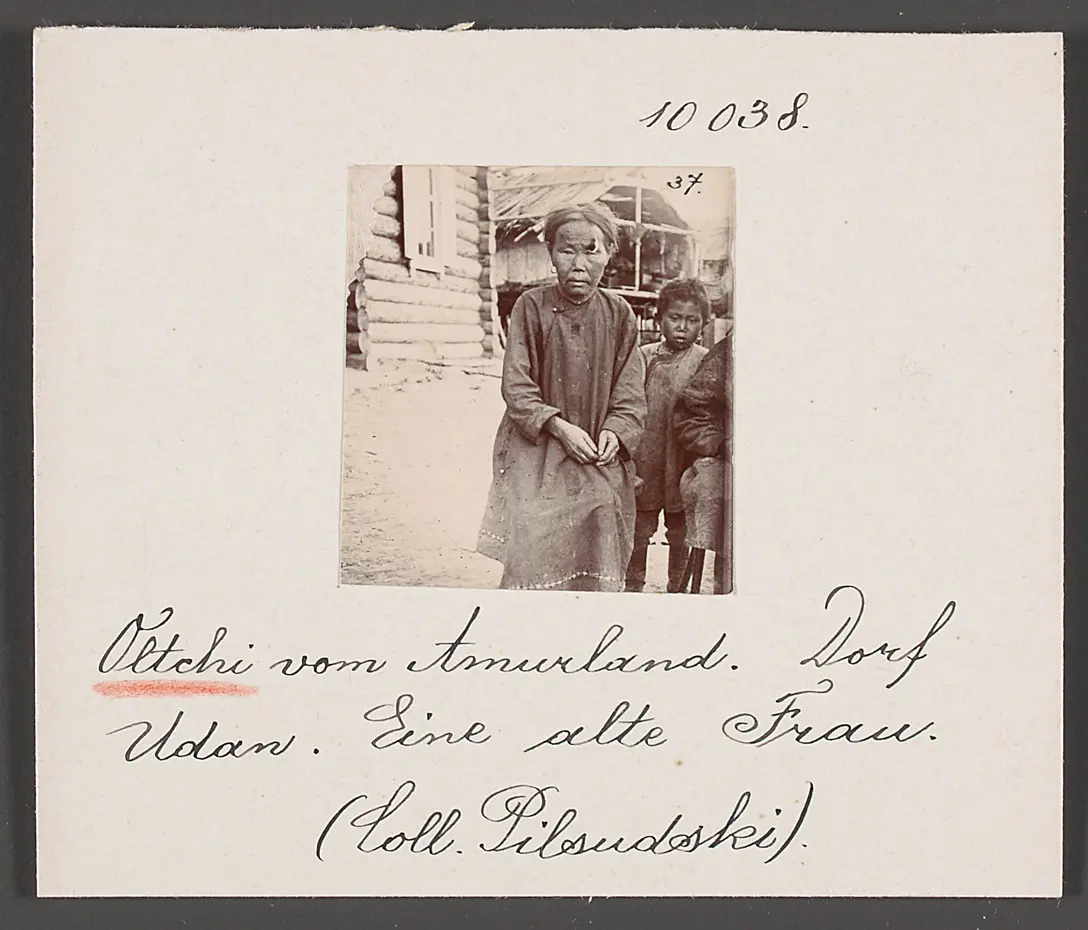 10 038.
37.
Oltchi vom Amurland. Dorf
Udan. Eine alte Frau.
(Coll. Pilsudski).